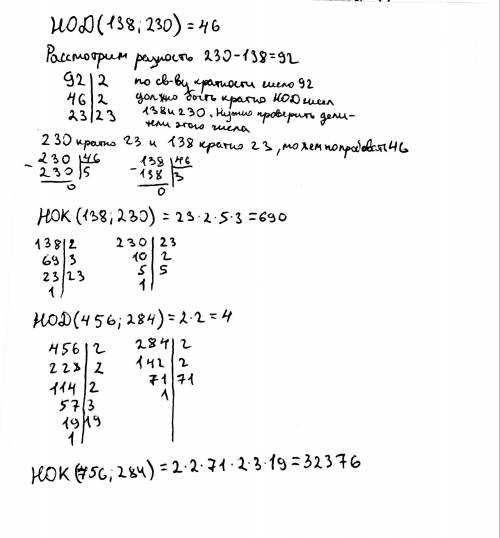 НОД(138; 230) = 46
Рассмотрим разность 230-138=92
92|2 по св-ву кратности число 92
46|2 должно быть кратно НОД чисел
23|23 138 и 230. Нужно проверить дели-
тели этого числа
230 кратно 23 и 138 кратно 23, можем попробовать 46
- 230|46 - 138|46
230|5 138|3
0 0
НОК(138; 230) = 23·2·5·3=690
138|2 230|23
69|3 10|2
23|23 5|5
1| 1|
НОД(456; 284) = 2·2=4
456|2 284|2
228|2 142|2
114|2 71|71
57|3 1|
19|19
1|
НОК(456; 284) = 2·2·71·2·3·19=32376